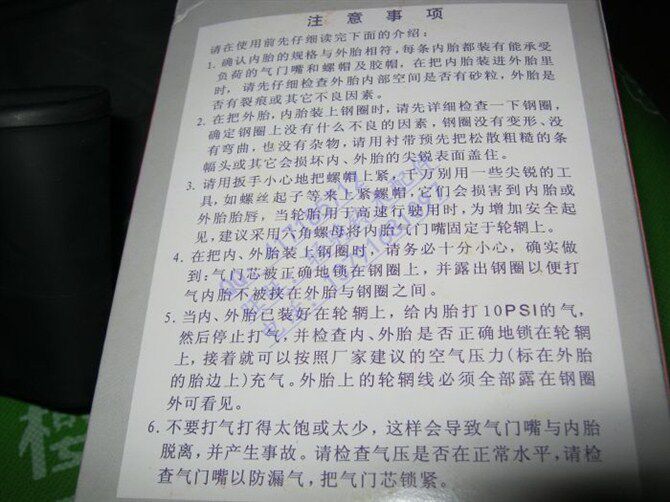 注意事项
请在使用前先仔细读完下面的介绍:
1. 确认内胎的规格与外胎相符,每条内胎都装有能承受
负荷的气门嘴和螺帽及胶帽,在把内胎装进外胎里
时,请先仔细检查外胎内部空间是否有砂粒,外胎是
否有裂痕或其它不良因素。
2. 在把外胎,内胎装上钢圈时,请先详细检查一下钢圈,
确定钢圈上没有什么不良的因素,钢圈没有变形、没
有弯曲,也没有杂物,请用衬带预先把松散粗糙的条
幅头或其它会损坏内、外胎的尖锐表面盖住。
3. 请用扳手小心地把螺帽上紧,千万别用一些尖锐的工
具,如螺丝起子等来上紧螺帽,它们会损害到内胎或
外胎胎唇,当轮胎用于高速行驶用时,为增加安全起
见,建议采用六角螺母将内胎气门嘴固定于轮辋上。
4. 在把内、外胎装上钢圈时,请务必十分小心,确实做
到:气门芯被正确地锁在钢圈上,并露出钢圈以便打
气内胎不被挟在外胎与钢圈之间。
5. 当内、外胎已装好在轮辋上,给内胎打10PSI的气,
然后停止打气,并检查内、外胎是否正确地锁在轮辋
上,接着就可以按照厂家建议的空气压力(标在外胎
的胎边上)充气。外胎上的轮辋线必须全部露在钢圈
外可看见。
6. 不要打气打得太饱或太少,这样会导致气门嘴与内胎
脱离,并产生事故。请检查气压是否在正常水平,请检
查气门嘴以防漏气,把气门芯锁紧。